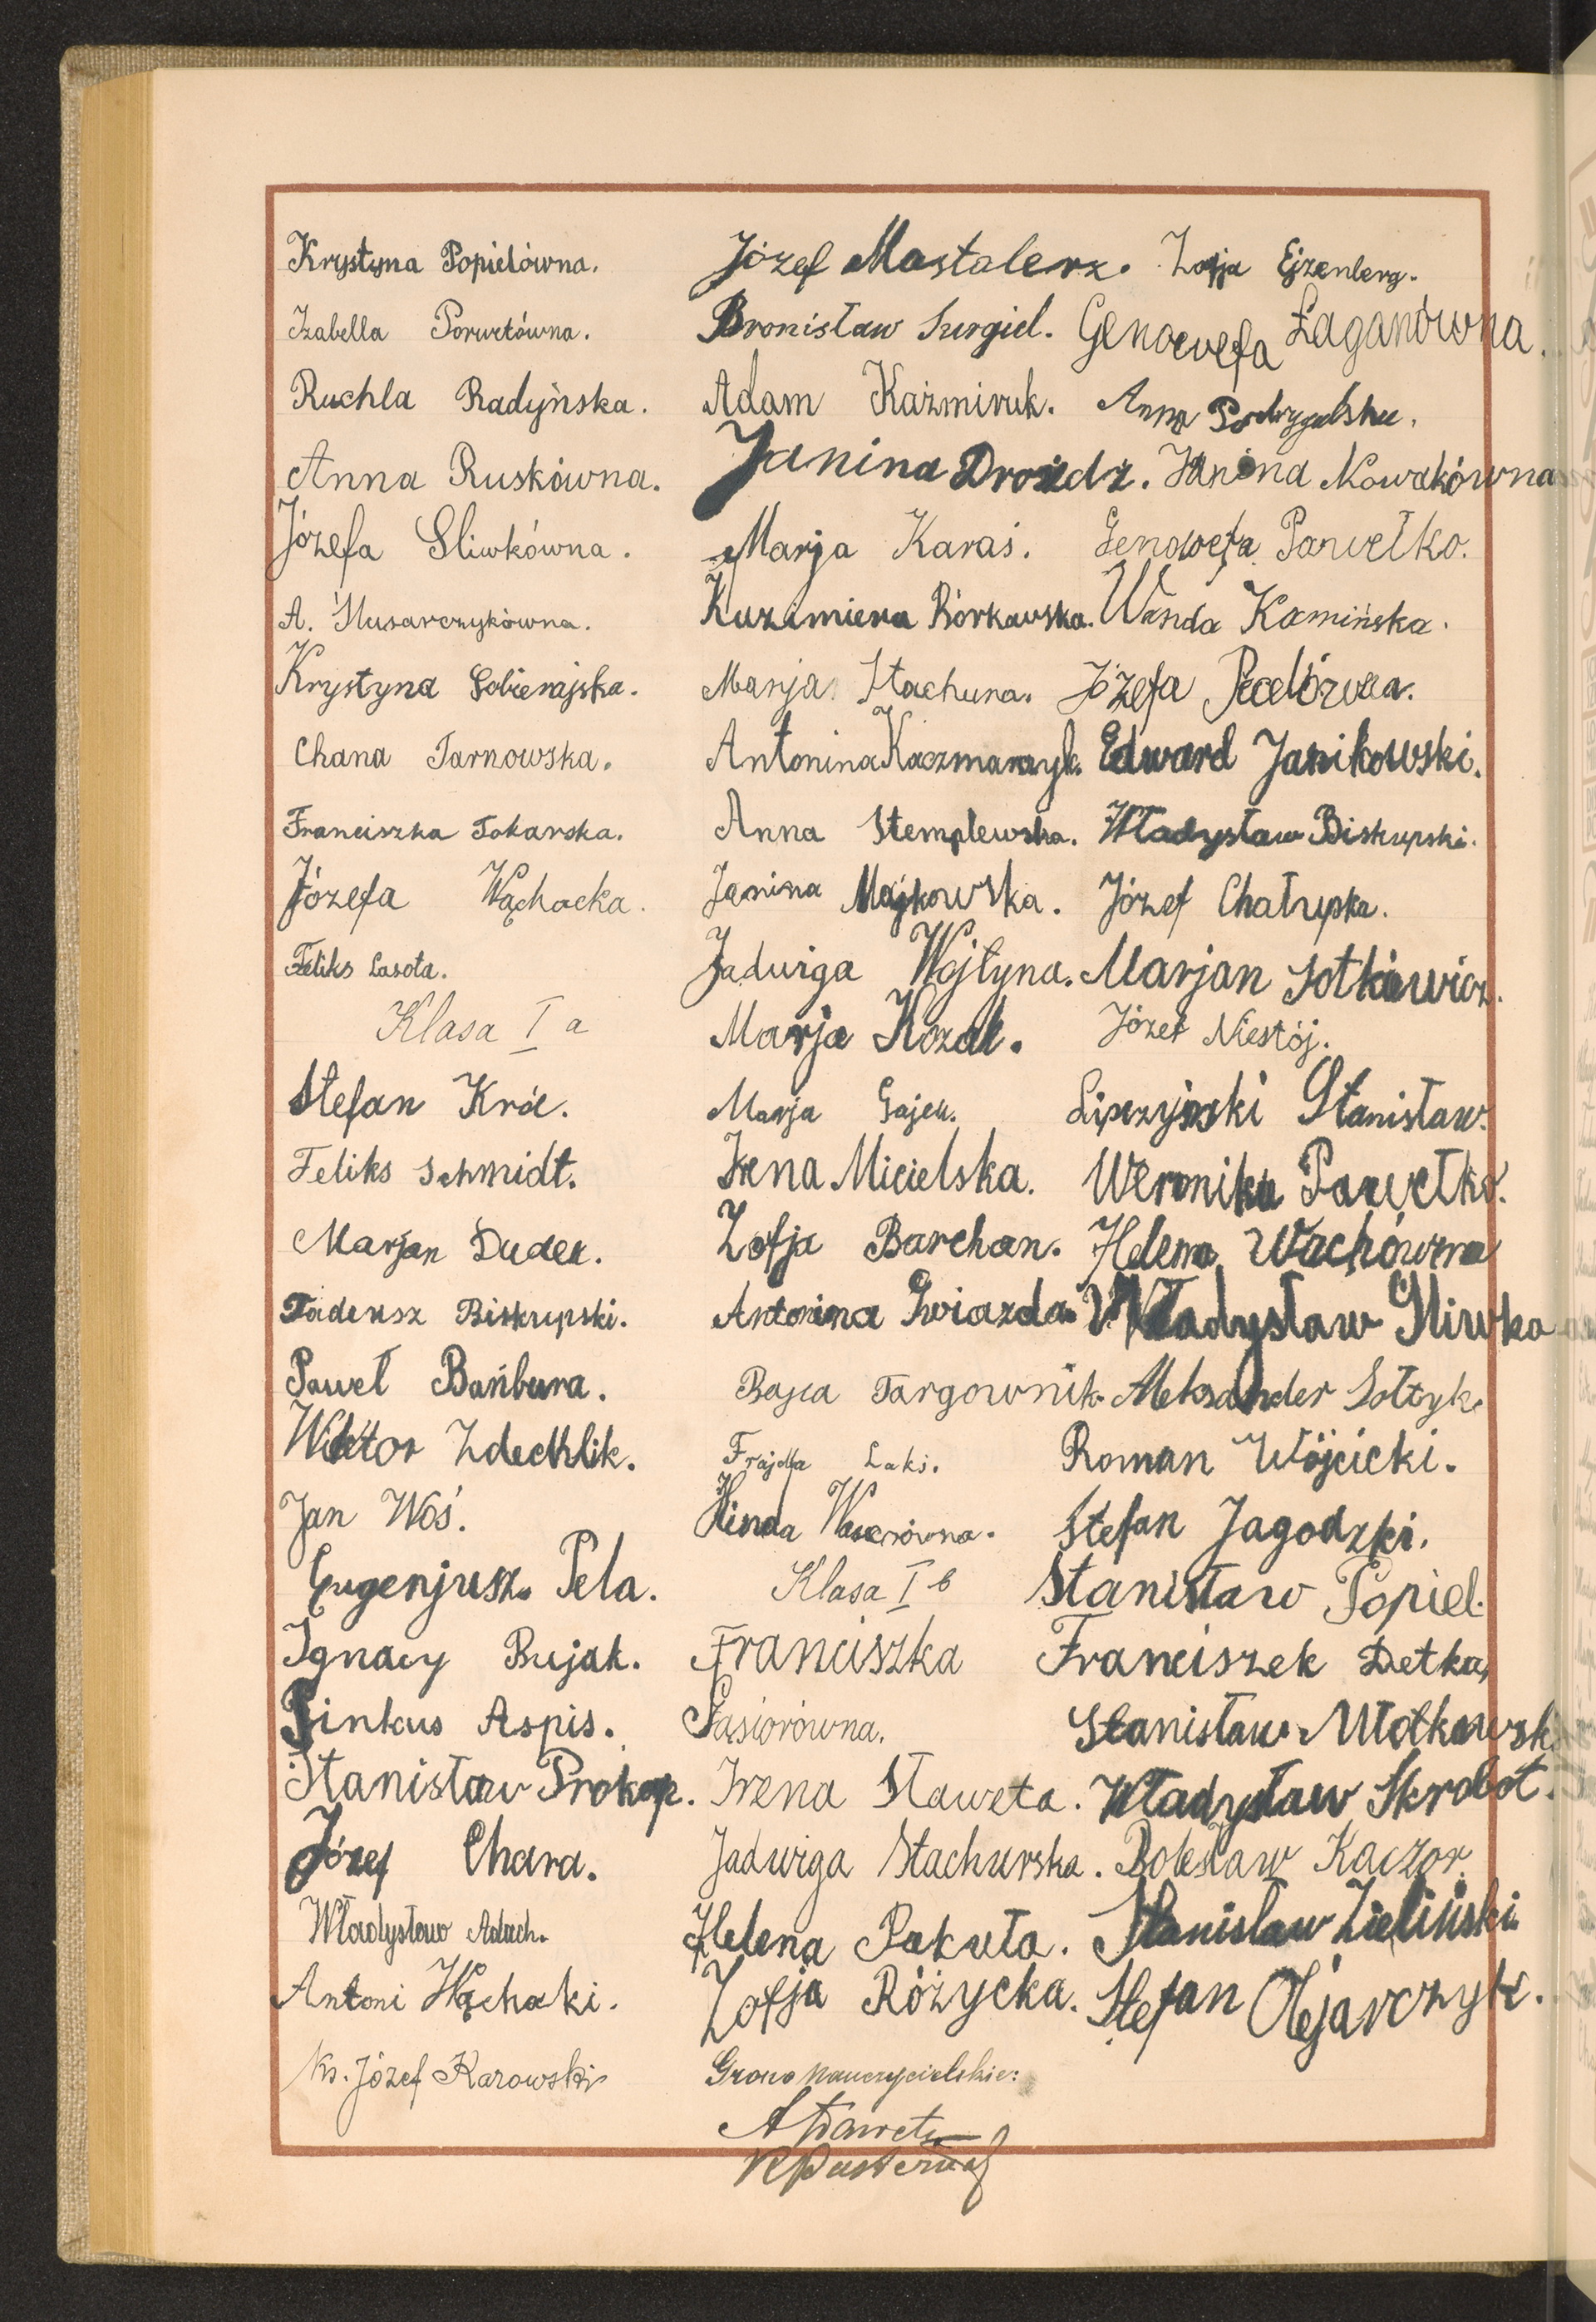 Krystyna Popielówna.
Izabella Porwetówna.
Ruchla Radyńska.
Anna Ruskówna.
Józefa Sliwkówna.
A. Ślusarczykówna.
Krystyna Sobierajska.
Chana Tarnowska.
Franciszka Tokarska.
Józefa Wąchacka.
Feliks Lasota.
Klasa I a
Stefan Król.
Feliks Schmidt.
Marjan Dudek.
Tadeusz Biskupski.
Paweł Bańbura.
Wiktor Zdechlik.
Jan Woś.
Eugenjusz Pela.
Ignacy Bujak.
Pinkus Aspis.
Stanisław Prokop.
Józef Chara.
Władysław Adach.
Antoni Wąchacki.
Ks. Józef Karowski
Józef Mastalerz.
Bronisław Surgiel.
Adam Kaźmiruk.
Janina Drożdż.
Marja Karaś.
Kazimiera Bórkowska.
Marja Stachura.
Antonina Kaczmarczyk.
Anna Stemplewska.
Janina Majkowska.
Jadwiga Wojtyna.
Marja Kozak.
Marja Gajek.
Irena Micielska.
Zofja Barchan.
Antonina Gwiazda.
Bajla Targownik.
Frajdla Laks.
Hinda Waserówna.
Klasa I b
Franciszka
Gąsiorówna.
Irena Staweta.
Jadwiga Stachurska.
Helena Pakuła.
Zofja Różycka.
Grono nauczycielskie:
Zofja Ejzenberg.
Genowefa Łaganówna.
Anna
Janina Nowakówna
Genowefa Pawełko.
Wanda Kamińska.
Józefa
Edward Janikowski.
Władysław Biskupski.
Józef Chałupka.
Marjan Sotkiewicz.
Józef Niestój.
Lipczyński Stanisław.
Weronika Pawełko.
Helena Wachówna
Władysław Sliwka
Aleksander Sołtyk.
Roman Wójcicki.
Stefan Jagodzki.
Stanisław Popiel.
Franciszek Detka,
Stanisław Młotkowski
Władysław Skrobot.
Bolesław Kaczor.
Stanisław Zieliński
Stefan Olejarczyk.